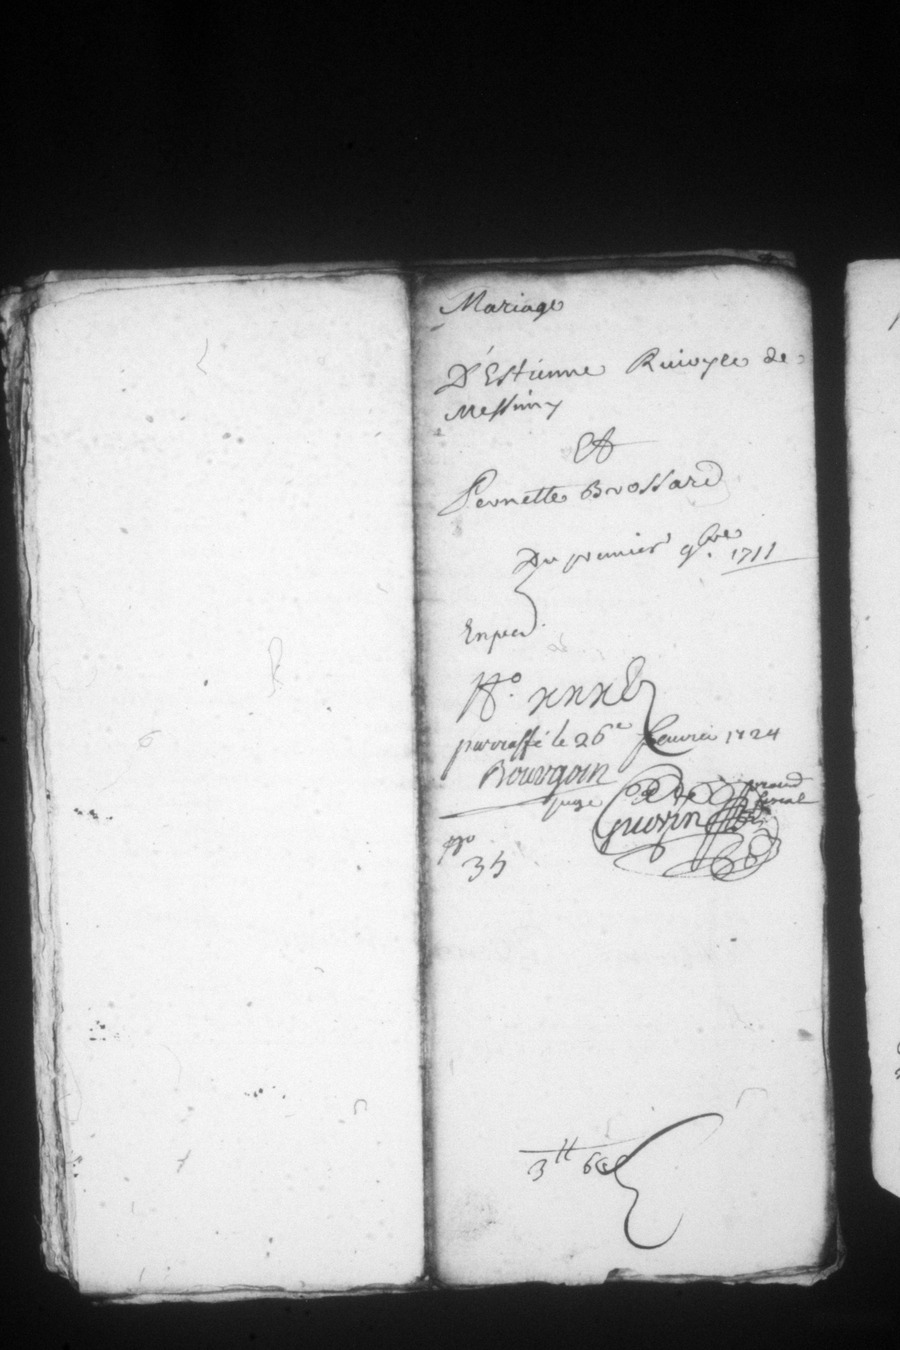 Mariage
D'Estienne Rivoyre de
Messimy
Et
Pernette Brossard
Du premier 9bre. 1711
Exped.
No.
parraffé le 26e feuvrier 1724
Bourgoin
juge
Guerin
fiscal
35
3tt 6s